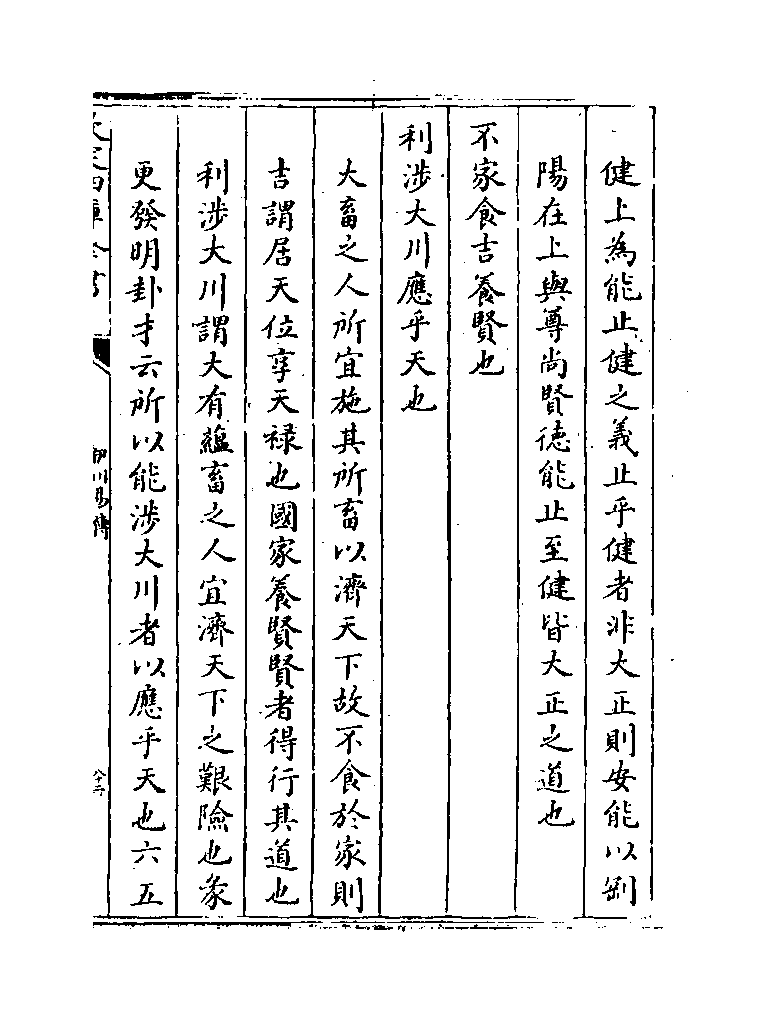 健上為能止健之義止乎健者非大正則安能以剛
陽在上與尊尚賢徳能止至健皆大正之道也
不家食吉養賢也
利渉大川應乎天也
大畜之人所宜施其所畜以濟天下故不食於家則
吉謂居天位享天禄也國家養賢賢者得行其道也
利涉大川謂大有蘊畜之人宜濟天下之艱險也彖
更發明卦才云所以能涉大川者以應乎天也六五
欽定四庫全書
伊川易傳